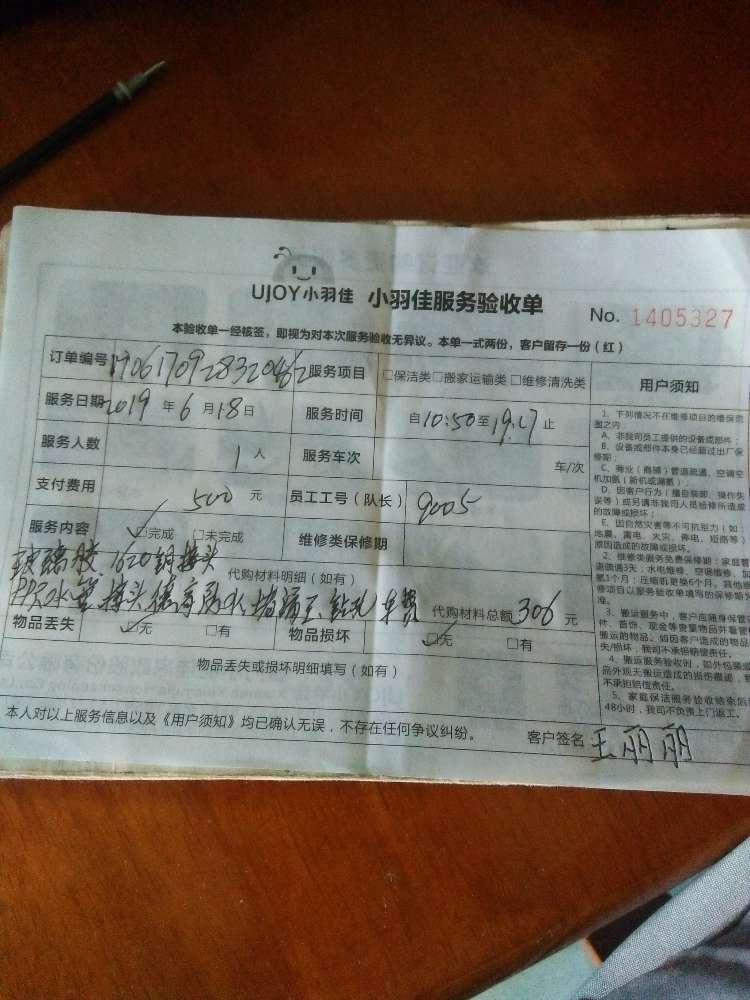 UJOY小羽佳 小羽佳服务验收单 No. 1405327
本验收单一经核签，即视为对本次服务验收无异议。本单一式两份，客户留存一份（红）
订单编号 190617092832046 服务项目 □保洁类□搬家运输类 □维修清洗类
服务日期 2019 年 6 月 18 日 服务时间 自10:50至19:27止
服务人数 1 人 服务车次 车/次
支付费用 500 元 员工工号（队长） 9005
服务内容 ☑完成 □未完成 维修类保修期
玻璃胶 1620铜接头
代购材料明细（如有）
PPR水管接头 防水 堵漏王 钻孔 车费 代购材料总额 306 元
物品丢失 ☑无 □有 物品损坏 ☑无 □有
物品丢失或损坏明细填写（如有）
本人对以上服务信息以及《用户须知》均已确认无误，不存在任何争议纠纷。 客户签名 王丽丽
用户须知
1、下列情况不在维修项目的维保范
围之内：
A、非我司员工提供的设备或部件；
B、设备或部件本身已经超过出厂保
修期；
C、商业（商铺）管道疏通、空调空
机加氟（新机或漏氟）；
D、因客户行为（擅自装卸、操作失
误等）或另请非我司人员检修所造成
的故障或损坏；
E、因自然灾害等不可抗拒力（如：
地震、雷电、火灾、停电、短路等）
原因造成的故障或损坏。
2、维修类服务免费保修期：家庭管
道疏通3天；水电维修、空调维修、加
氟1个月；压缩机更换6个月。其他维
修项目以服务验收单填写的保修期为
准。
3、搬运服务中，客户应随身保管证
件、首饰、现金等贵重物品并看管
搬运的物品。如因客户造成的物品
失/损坏，我司不承担赔偿责任。
4、搬运服务验收时，如外包装
品外观无搬运造成的损伤痕迹，
不承担赔偿责任。
5、家庭保洁服务验收结束后
48小时，我司不负责上门返工。